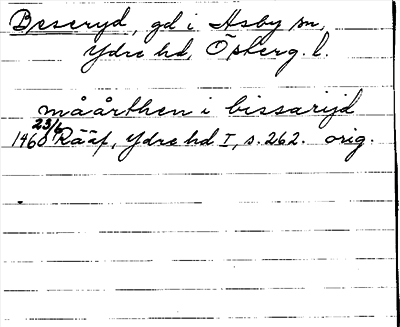 Breseryd, gd i Asby sn,
Ydre hd, Österg. l.
måårthen i bissarijd
23/6
1460 Rääf, Ydre hd I, s. 262. orig.